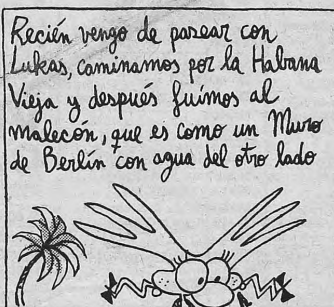 Recién vengo de pasear con
Lukas, caminamos por la Habana
Vieja y después fuímos al
malecón, que es como un Muro
de Berlín con agua del otro lado